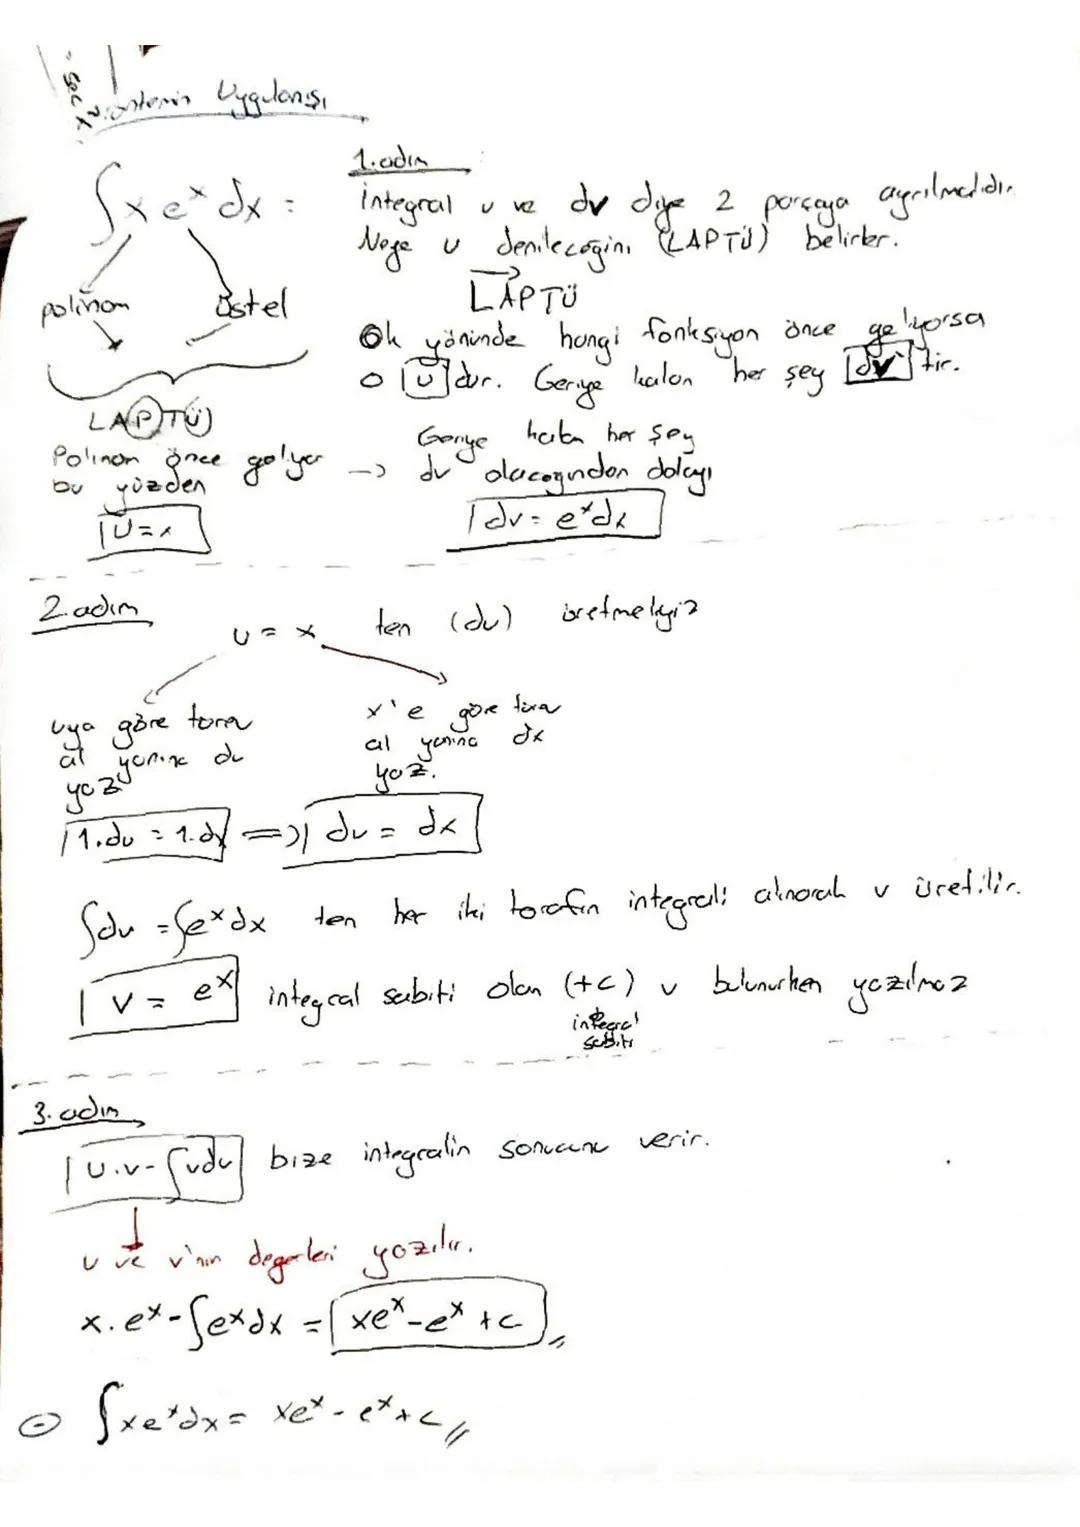 Yöntemin Uygulanışı
∫x eˣ dx :
polinom
üstel
LAPTÜ
Polinom önce geliyor
bu yüzden
U = x
1. adım
İntegral u ve dv diye 2 parçaya ayrılmalıdır.
Neye u denileceğini (LAPTÜ) belirler.
LAPTÜ
Ok yönünde hangi fonksiyon önce geliyorsa
o u dur. Geriye kalan her şey dv tir.
Geriye kalan her şey
-> dv olacağından dolayı
dv = eˣdx
2. adım
u = x ten (du) üretmeliyiz
u ya göre türev
al yanına du
yaz
x'e göre türev
al yanına dx
yaz.
1.du = 1.dx => du = dx
∫dv = ∫eˣdx ten her iki tarafın integrali alınarak v üretilir.
v = eˣ integral sabiti olan (+c) v bulunurken yazılmaz
integral
sabiti
3. adım
u.v - ∫vdu bize integralin sonucunu verir.
u ve v'nin değerleri yazılır.
x. eˣ - ∫eˣdx = xeˣ - eˣ + c //
∫xeˣdx = xeˣ - eˣ + c //